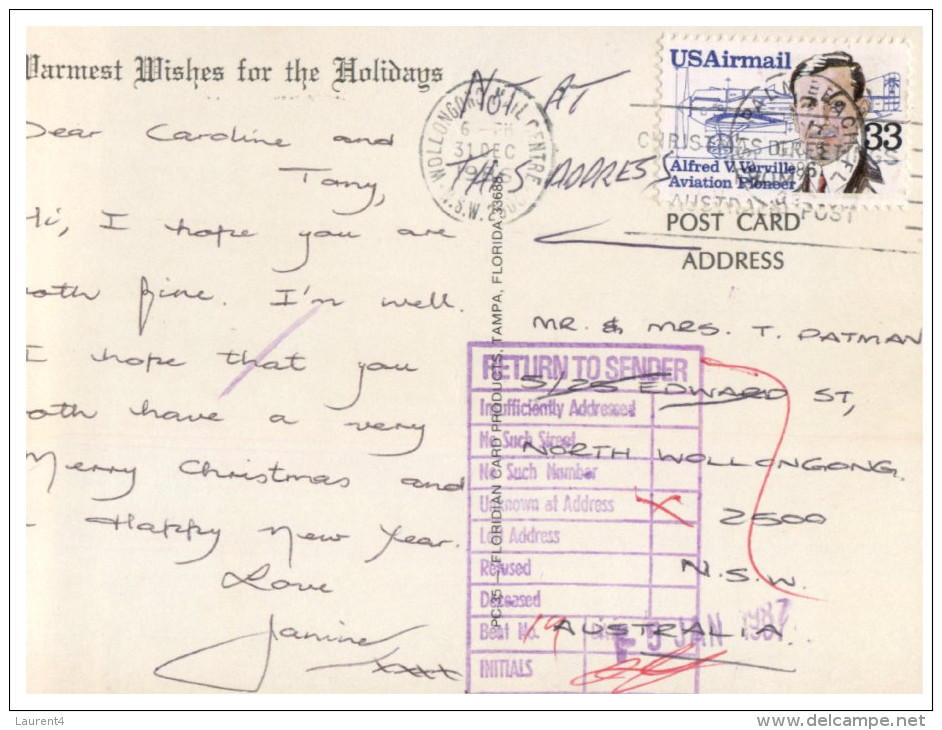 Warmest Wishes for the Holidays
Dear Caroline and
Tony,
Hi, I hope you are
both fine. I'm well.
I hope that you
both have a very
Merry Christmas and
Happy New Year.
Love
Janine
xxxx
NOT AT
THIS ADDRESS
WOLLONGONG MAIL CENTRE
6 - PM
31 DEC
1986
N.S.W. 2500
USAirmail
33
Alfred V. Verville
Aviation Pioneer
CHRISTMAS
AUSTRALIA POST
POST CARD
ADDRESS
MR. & MRS. T. PATMAN
5/25 EDWARD ST,
NORTH WOLLONGONG.
2500
N.S.W.
AUSTRALIA.
PC35 — FLORIDIAN CARD PRODUCTS, TAMPA, FLORIDA 33688
RETURN TO SENDER
Insufficiently Addressed
No Such Street
No Such Number
Unknown at Address X
Left Address
Refused
Deceased
Beat No. 19
INITIALS
5 JAN 1987
Laurent4
www.delcampe.net